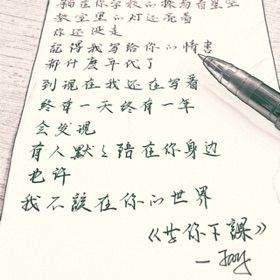 躺在你学校的操场看星空
教室里的灯还亮着
你还没走
記得我写给你的情書
都什麼年代了
到现在我还在写着
终有一天终有一年
会发现
有人默々陪在你身边
也许
我不該在你的世界
《等你下課》